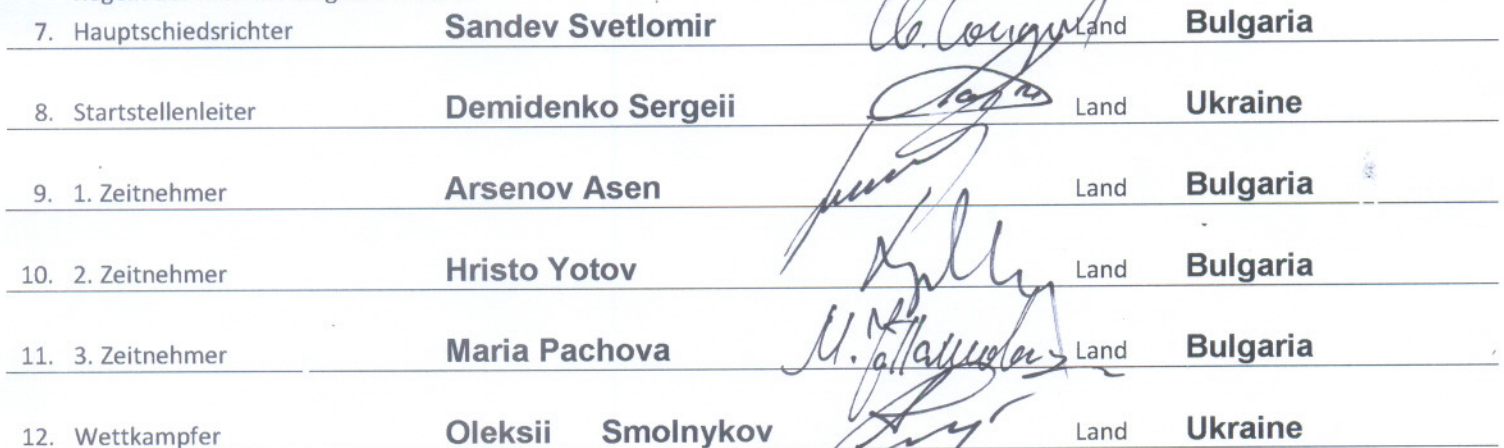 7. Hauptschiedsrichter Sandev Svetlomir Land Bulgaria
8. Startstellenleiter Demidenko Sergeii Land Ukraine
9. 1. Zeitnehmer Arsenov Asen Land Bulgaria
10. 2. Zeitnehmer Hristo Yotov Land Bulgaria
11. 3. Zeitnehmer Maria Pachova Land Bulgaria
12. Wettkampfer Oleksii Smolnykov Land Ukraine